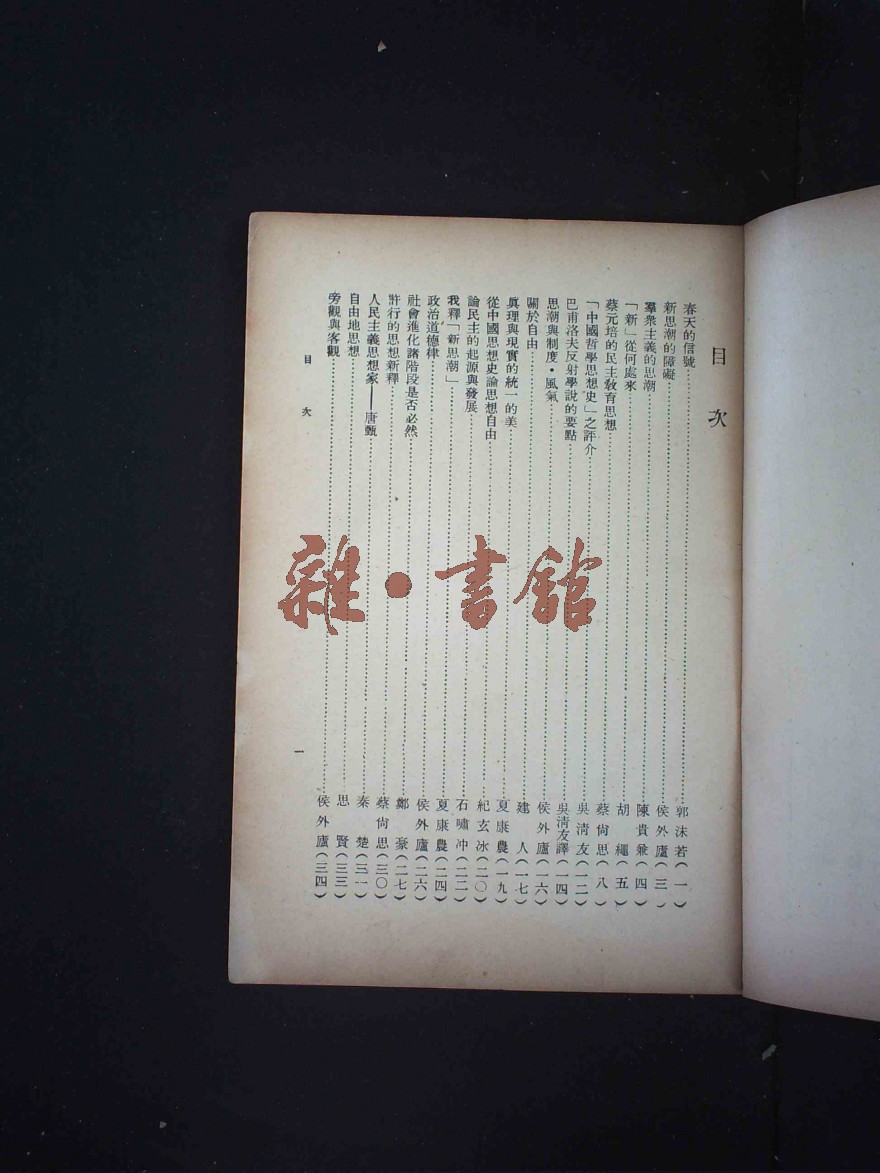 目次
春天的信號⋯⋯郭沫若(一)
新思潮的障礙⋯⋯侯外廬(三)
羣衆主義的思潮⋯⋯陳貴兼(四)
「新」從何處來⋯⋯胡繩(五)
蔡元培的民主教育思想⋯⋯蔡尙思(八)
「中國哲學思想史」之評介⋯⋯吳淸友(一二)
巴甫洛夫反射學說的要點⋯⋯吳淸友譯(一四)
思潮與制度·風氣⋯⋯侯外廬(一六)
關於自由⋯⋯建人(一七)
眞理與現實的統一的美⋯⋯夏康農(一九)
從中國思想史論思想自由⋯⋯紀玄冰(二〇)
論民主的起源與發展⋯⋯石嘯冲(二二)
我釋「新思潮」⋯⋯夏康農(二四)
政治道德律⋯⋯侯外廬(二六)
社會進化諸階段是否必然⋯⋯鄭豪(二七)
許行的思想新釋⋯⋯蔡尙思(三〇)
人民主義思想家——唐甄⋯⋯秦楚(三一)
自由地思想⋯⋯思賢(三三)
旁觀與客觀⋯⋯侯外廬(三四)
目次
一
雜·書館